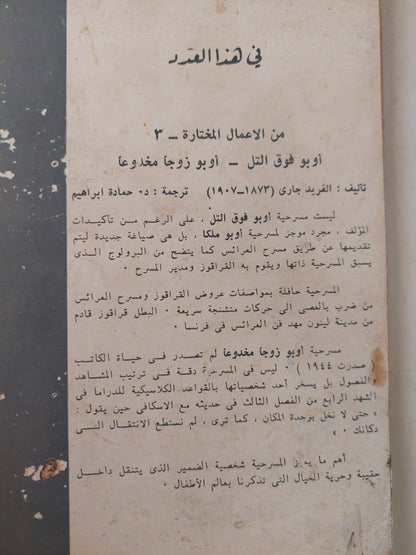 في هذا العدد
من الاعمال المختارة - ٣
أوبو فوق التل - أوبو زوجا مخدوعا
تأليف : الفريد جاري (١٨٧٣-١٩٠٧) ترجمة : د٠ حمادة ابراهيم
ليست مسرحية أوبو فوق التل ، على الرغم من تأكيدات
المؤلف ، مجرد موجز لمسرحية أوبو ملكا ، بل هى صياغة جديدة ليتم
تقديمها عن طريق مسرح العرائس كما يتضح من البرولوج الذى
يسبق المسرحية ذاتها ويقوم به القراقوز ومدير المسرح ٠
المسرحية حافلة بمواصفات عروض القراقوز ومسرح العرائس
من ضرب بالعصى الى حركات متشنجة سريعة ٠ البطل قراقوز قادم
من مدينة ليون مهد فن العرائس فى فرنسا ٠
مسرحية أوبو زوجا مخدوعا لم تصدر فى حياة الكاتب
( صدرت ١٩٤٤ ) ٠ ليس فى المسرحية دقة فى ترتيب المشاهد
والفصول بل يسخر أحد شخصياتها بالقواعد الكلاسيكية للدراما فى
المشهد الرابع من الفصل الثالث فى حديثه مع الاسكافى حين يقول :
« حتى لا نخل بوحدة المكان ، كما ترى ، لم نستطع الانتقال الى
دكانك » ٠
أهم ما يميز المسرحية شخصية الضمير الذى يتنقل داخل
حقيبة وحرية الخيال التى تذكرنا بعالم الأطفال ٠